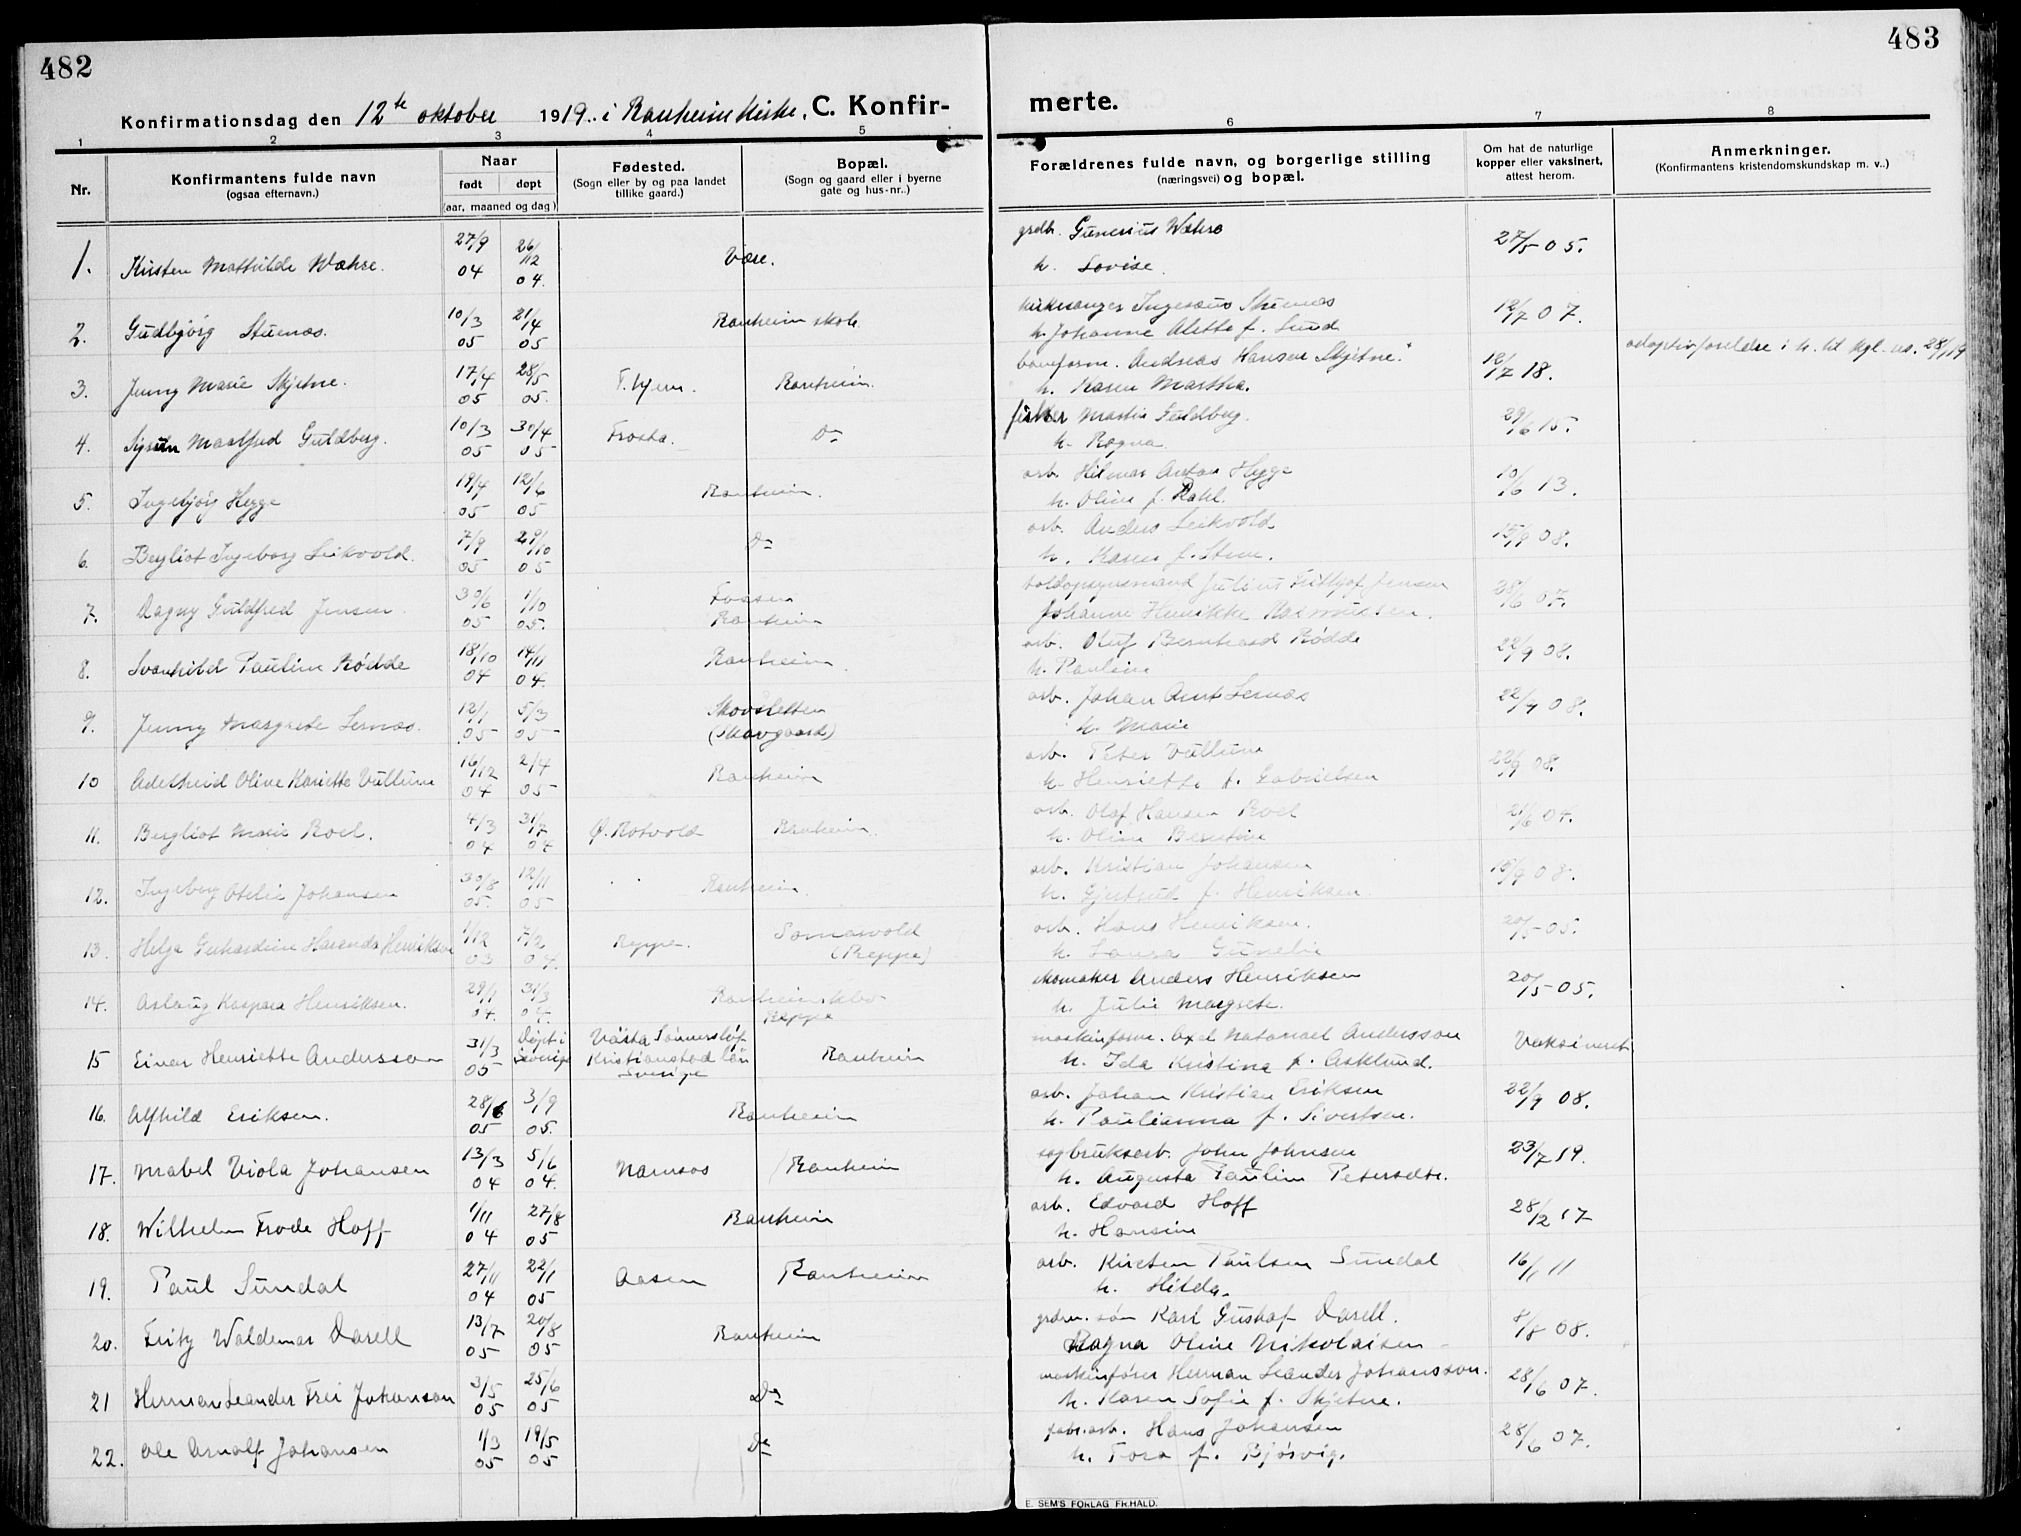 482
483
Konfirmationsdag den 12te oktober 1919. i Ranheim kirke. C. Konfir-
merte.
1 2 3 4 5 6 7 8
Nr.
Konfirmantens fulde navn
(ogsaa efternavn.)
Naar
født døpt
(aar, maaned og dag)
Fødested.
(Sogn eller by og paa landet
tillike gaard.)
Bopæl.
(Sogn og gaard eller i byerne
gate og hus-nr..)
Forældrenes fulde navn, og borgerlige stilling
(næringsvei) og bopæl.
Om hat de naturlige
kopper eller vaksinert,
attest herom.
Anmerkninger.
(Konfirmantens kristendomskundskap m. v..)
27/9 26/12 grdb. Gunerius Wæhre 27/5 05.
1. Kirsten Mathilde Wæhre. 04 04. Være. h. Lovise.
10/3 21/4 kirkesanger Ingesæus Stuenæs 12/7 07.
2. Gudbjørg Stuenæs. 05 05 Ranheim skole h. Johanne Alette f. Lund
17/4 28/5 Andreas Hansen Skjetne. 12/7 18. adoptivforeldre i h. til kgl. res. 28/1 19
3. Jenny Marie Skjetne. 05 05. T.hjem. Ranheim. h. Karen Martha.
10/3 30/4 fisker Martin Guldberg. 29/6 15.
4. Maalfred Guldberg. 05 05 Frosta. Do h. Ragna
19/4 12/6 arb. Hilmar Anton Hegge 10/6 13.
5. Ingebjørg Hegge 05 05 Ranheim. h. Oline f.
7/9 29/10 arb. Anders Leikvold 15/9 08.
6. Bergliot Ingeborg Leikvold. 05 05 Do h. Karen f. Stene.
30/6 1/10 Fossen toldopsynsmand Julius Frithjof Jensen 28/6 07.
7. Dagny Guldfred Jensen. 05 05. Ranheim Johanne Henrikke Rasmussen.
18/10 14/11 arb. Oluf Bernhard Rødde 22/9 08.
8. Svanhild Pauline Rødde 04 04. Ranheim. h. Pauline
12/1 5/3 Skovsletten arb. Johan Arnt Lernæs 22/9 08.
9. Jenny Margrete Lernæs. 05 05 (Skovgaard) h. Marie
16/12 2/4 arb. Peter Vullum 22/9 08.
10 Adelheid Olive Karietta Vullum 04 05 Ranheim h. Henriette f. Gabrielsen
4/3 31/7 arb. Olaf Hansen Roel 21/6 04.
11. Bergliot Marie Roel. 04 04 Ø. Rotvold Ranheim. h. Oline Berntine
30/8 12/11 arb. Kristian Johansen 15/9 08.
12. Ingeborg Otelie Johansen 05. 05 Ranheim. h. Gjertrud f. Henriksen.
1/12 7/2 Somarvold arb. Hans Henriksen. 20/5 05.
13. Helga Gerhardine Haranda Henriksen 03 04. Reppe. (Reppe) h. Laura Gunelie
29/1 31/3 skomaker Anders Henriksen 20/5 05.
14. Aslaug Kaspara Henriksen. 04. 04. Reppe h. Julie Margrete.
31/3 Døpt i maskinform. Axel Natanael Andersson Vaksineret
15 Einar Henriette Andersson 05 Sverige Kristianstad län Sverige Ranheim h. Ida Kristina f. Asklund.
28/6 3/9 arb. Johan Kristian Eriksen 22/9 08.
16. Alfhild Eriksen. 05 05. Ranheim h. Paulianna f. Sivertsen.
13/3 5/6 sagbruksarb. John Johnsen 23/7 19.
17. Mabel Viola Johansen 04 04. Namsos Ranheim h. Augusta Pauline
1/11 27/8 arb. Edvard Hoff 28/2 17
18. Wilhelm Frode Hoff 04 05 Ranheim h. Hansine
27/11 22/1 arb. Kirsten Paulsen Sundal 16/1 11
19. Paul Sundal 04 05 Aasen Ranheim h. Hilda.
13/7 20/8 søn Karl Gustaf Darell. 8/8 08.
20. Fritz Waldemar Darell 05 05 Ranheim Ragna Oline Nikolaisen
3/5 25/6 maskinfører Herman Leander Johansson. 28/6 07.
21 Herman Leander Frei Johanson 05 05 Do h. Karen Sofie f. Skjetne.
1/3 19/5 fabr.arb. Hans Johansen 28/6 07.
22. Ole Arnolf Johansen 05 05 Do h. Tora f. Bjørvig.
E. SEM'S FORLAG FR.HALD.